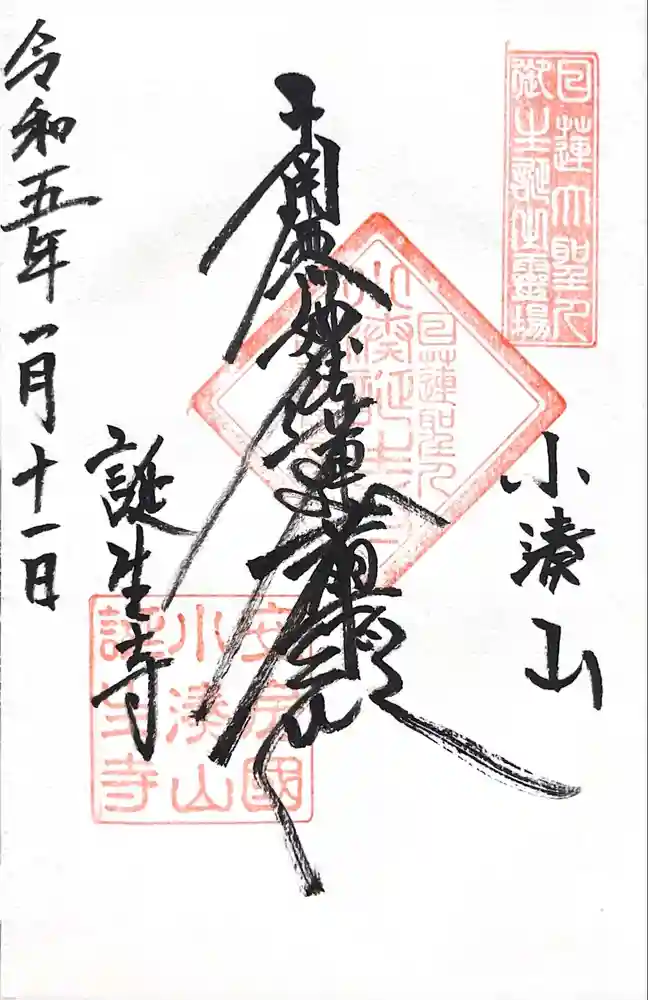 日蓮大聖人
御生誕之靈場
小湊山
日蓮聖人
小湊誕生寺
南無妙法蓮華経
安房國
小湊山
誕生寺
誕生寺
令和五年一月十一日